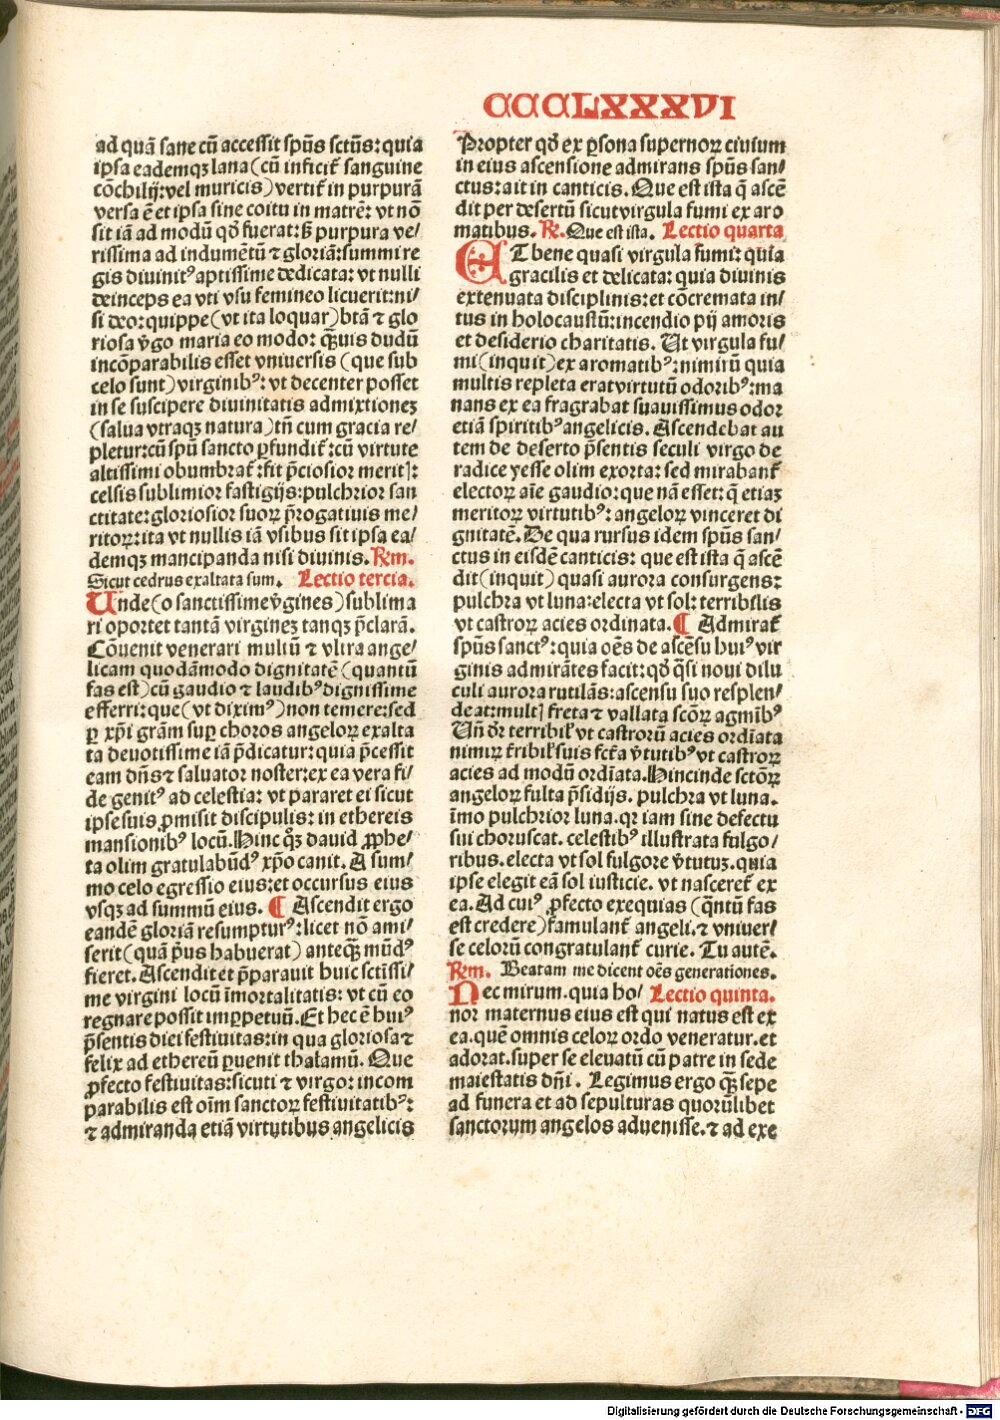 CCCLXXXVI
ad quã sane cũ accessit spũs sctũs: quia
ipsa eademqʒ lana (cũ inficit᷑ sanguine
cõchilij: vel muricis) vertit᷑ in purpurã
versa ē et ipsa sine coitu in matrē: vt nõ
sit iã ad modũ qđ fuerat: sꝫ purpura ve/
rissima ad indumētũ ⁊ gloriã: summi re
gis diuinitꝰ aptissime dedicata: vt nulli
deinceps ea vti vsu femineo licuerit: ni/
si deo: quippe (vt ita loquar) btã ⁊ glo
riosa v̾go maria eo modo: qꝫuis dudũ
incõparabilis esset vniuersis (que sub
celo sunt) virginibꝰ: vt decenter posset
in se suscipere diuinitatis admixtionez
(salua vtraqʒ natura) tñ cum gracia re/
pletur: cũ spũ sancto ꝑfundit᷑: cũ virtute
altissimi obumbrat᷑: fit p̃ciosior meritꝭ:
celsis sublimior fastigijs: pulchrior san
ctitate: gloriosior suoꝝ p̃rogatiuis me/
ritoꝝ: ita vt nullis iã vsibus sit ipsa ea/
demqʒ mancipanda nisi diuinis. Rm.
Sicut cedrus exaltata sum. Lectio tercia.
Unde (o sanctissime v̾gines) sublima
ri oportet tantã virginez tanqʒ p̃clarã.
Cõuenit venerari multũ ⁊ vltra ange/
licam quodãmodo dignitatē (quantũ
fas est) cũ gaudio ⁊ laudibꝰ dignissime
efferri: que (vt diximꝰ) non temere: sed
ꝑ xp̃i grãm suꝑ choros angeloꝝ exalta
ta deuotissime iã p̃dicatur: quia p̃cessit
eam dñs ⁊ saluator noster: ex ea vera fi/
de genitꝰ ad celestia: vt pararet ei sicut
ipse suis ꝓmisit discipulis: in ethereis
mansionibꝰ locũ. Hinc qꝫ dauid ꝓphe/
ta olim gratulabũdꝰ xp̃o canit. A sum/
mo celo egressio eius: et occursus eius
vsqʒ ad summũ eius. ¶ Ascendit ergo
eandē gloriã resumpturꝰ: licet nõ ami/
serit (quã p̾us habuerat) anteqꝫ mũdꝰ
fieret. Ascendit et p̃parauit huic sctĩssi/
me virgini locũ ĩmortalitatis: vt cũ eo
regnare possit imꝑpetuũ. Et hec ē huiꝰ
p̃sentis diei festiuitas: in qua gloriosa ⁊
felix ad ethereũ ꝑuenit thalamũ. Que
ꝓfecto festiuitas: sicuti ⁊ virgo: incom
parabilis est oĩm sanctoꝝ festiuitatibꝰ:
⁊ admiranda etiã virtutibus angelicis
Propter qđ ex ꝑsona supernoꝝ ciuium
in eius ascensione admirans spũs san/
ctus: ait in canticis. Que est ista q̃ ascē
dit per desertũ sicut virgula fumi ex aro
matibus. R. Que est ista. Lectio quarta
ET bene quasi virgula fumi: quia
gracilis et delicata: quia diuinis
extenuata disciplinis: et cõcremata in/
tus in holocaustũ: incendio pij amoris
et desiderio charitatis. Ut virgula fu/
mi (inquit) ex aromatibꝰ: nimirũ quia
multis repleta erat virtutũ odoribꝰ: ma
nans ex ea fragrabat suauissimus odor
etiã spiritibꝰ angelicis. Ascendebat au
tem de deserto p̃sentis seculi virgo de
radice yesse olim exorta: sed mirabant᷑
electoꝝ aĩe gaudio: que nã esset: q̃ etiaz
meritoꝝ virtutibꝰ: angeloꝝ vinceret di
gnitatē. De qua rursus idem spũs san/
ctus in eisdē canticis: que est ista q̃ ascē
dit (inquit) quasi aurora consurgens:
pulchra vt luna: electa vt sol: terribilis
vt castroꝝ acies ordinata. ¶ Admirat᷑
spũs sanctꝰ: quia oēs de ascēsu huiꝰ vir
ginis admirãtes facit: qđ q̃si noui dilu
culi aurora rutilãs: ascensu suo resplen/
deat: multꝭ freta ⁊ vallata scõꝝ agmĩbꝰ
Uñ dr̃ terribil̾ vt castrorũ acies ordĩata
nimiꝝ t᷑ribil̾ suis fctã v̾tutibꝰ vt castroꝝ
acies ad modũ ordĩata. Hincinde sctõꝝ
angeloꝝ fulta p̃sidijs. pulchra vt luna.
ĩmo pulchrior luna. qꝛ iam sine defectu
sui choruscat. celestibꝰ illustrata fulgo/
ribus. electa vt sol fulgore v̾tutuz. quia
ipse elegit eã sol iusticie. vt nasceret᷑ ex
ea. Ad cuiꝰ ꝓfecto exequias (q̃ntũ fas
est credere) famulant᷑ angeli. ⁊ vniuer/
se celorũ congratulant᷑ curie. Tu autē.
Rm. Beatam me dicent oēs generationes.
Nec mirum. quia ho/ Lectio quinta.
nor maternus eius est qui natus est ex
ea. quē omnis celoꝝ ordo veneratur. et
adorat. super se eleuatũ cũ patre in sede
maiestatis dñi. Legimus ergo qꝫ sepe
ad funera et ad sepulturas quorũlibet
sanctorum angelos aduenisse. ⁊ ad exe
Digitalisierung gefördert durch die Deutsche Forschungsgemeinschaft - DFG